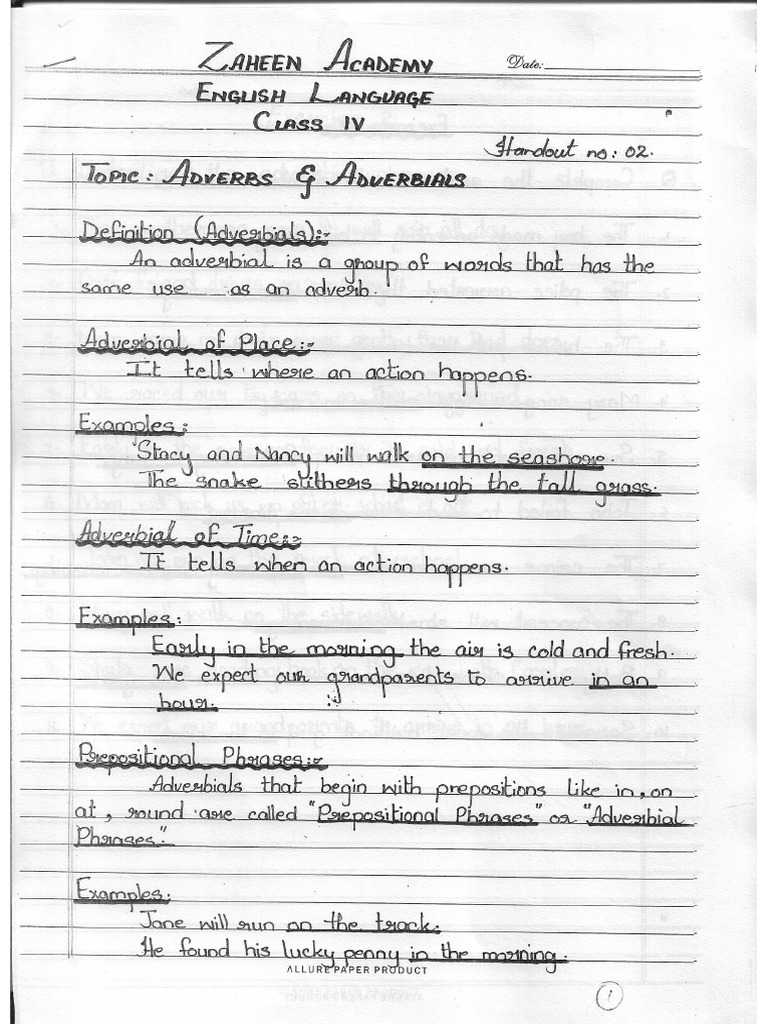 ZAHEEN ACADEMY
Date:
ENGLISH LANGUAGE
CLASS IV
Handout no: 02.
TOPIC: ADVERBS & ADVERBIALS
Definition (Adverbials):-
An adverbial is a group of words that has the
same use as an adverb.
Adverbial of Place:-
It tells where an action happens.
Examples:
Stacy and Nancy will walk on the seashore.
The snake slithers through the tall grass.
Adverbial of Time:-
It tells when an action happens.
Examples:
Early in the morning the air is cold and fresh.
We expect our grandparents to arrive in an
hour.
Prepositional Phrases:-
Adverbials that begin with prepositions like in, on
at, round are called "Prepositional Phrases" or "Adverbial
Phrases".
Examples:
Jane will run on the track.
He found his lucky penny in the morning.
ALLURE PAPER PRODUCT
1